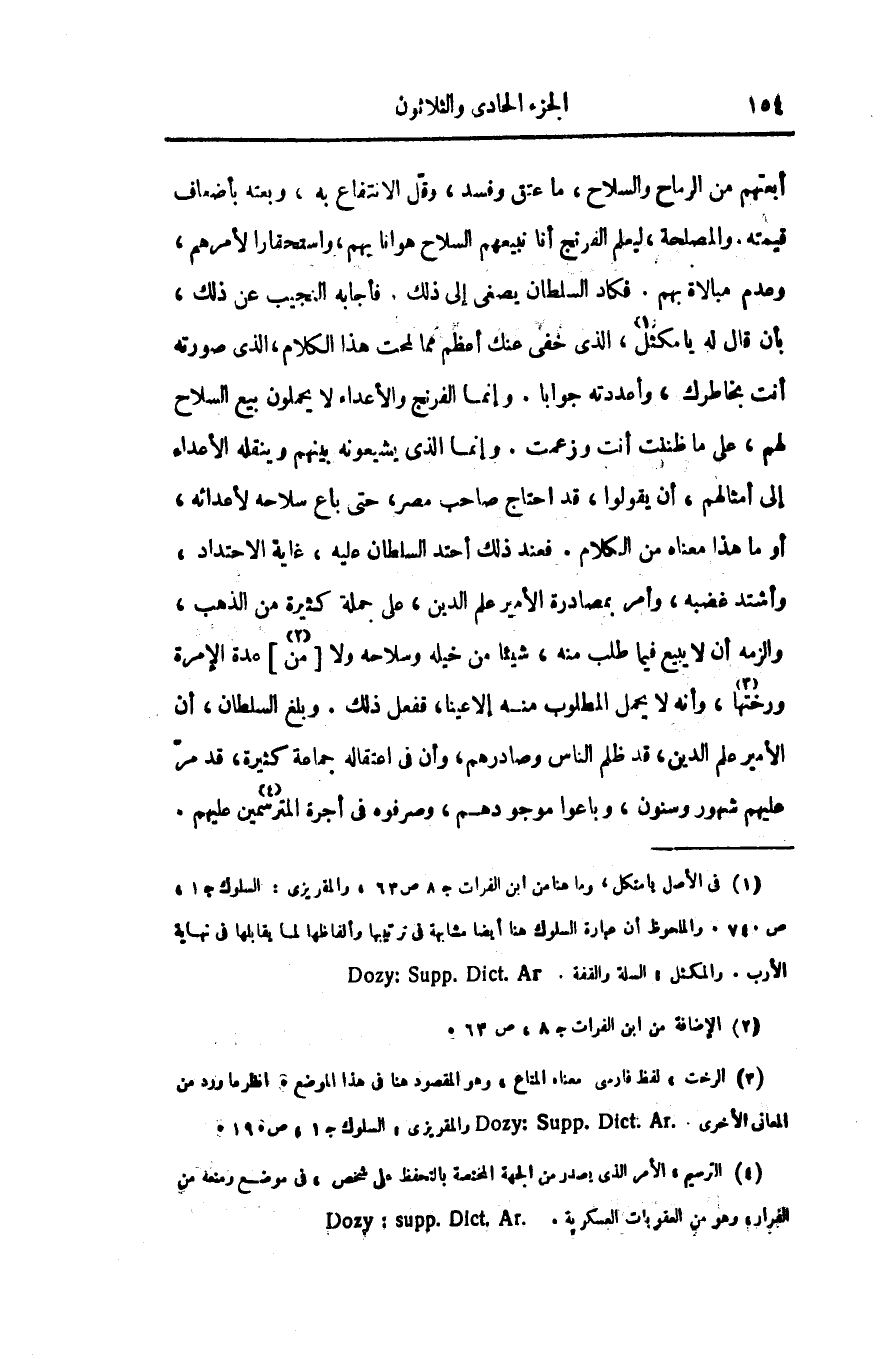 ١٥٤ الجزء الحادى والثلاثون
أبعتهم من الرماح والسلاح ، ما عتق وفسد ، وقلّ الانتفاع به ، وبعته بأضعاف
قيمته . والمصلحة ، ليعلم الفرنج أنا نبيعهم السلاح هوانا بهم ، واستحقارا لأمرهم ،
وعدم مبالاة بهم . فكاد السلطان يصغى إلى ذلك . فأجابه النجيب عن ذلك ،
بأن قال له يا مكثل (١) ، الذى خفى عنك أعظم مما لمحت هذا الكلام ، الذى صورته
أنت بخاطرك ، وأعددته جوابا . وإنمـا الفرنج والأعداء لا يحملون بيع السلاح
لهم ، على ما ظننت أنت وزعمت . وإنمـا الذى يشيعونه بينهم وينقله الأعداء
إلى أمثالهم ، أن يقولوا ، قد احتاج صاحب مصر ، حتى باع سلاحه لأعدائه ،
أو ما هذا معناه من الكلام . فعند ذلك أحتد السلطان عليه ، غاية الاحتداد ،
وأشتد غضبه ، وأمر بمصادرة الأمير علم الدين ، على حملة كثيرة من الذهب ،
والزمه أن لا يبيع فيما طلب منه ، شيئا من خيله وسلاحه ولا [ من (٢) ] عدة الإمرة
ورختها (٣) ، وأنه لا يحمل المطلوب منـه إلا عينا ، ففعل ذلك . وبلغ السلطان ، أن
الأمير علم الدين ، قد ظلم الناس وصادرهم ، وأن فى اعتقاله جماعة كثيرة ، قد مرّ
عليهم شهور وسنون ، وباعوا موجودهـم ، وصرفوه فى أجرة المترسمين (٤) عليهم .
(١) فى الأصل يا متكل ، وما هنا من ابن الفرات جـ ٨ ص ٦٣ ، والمقريزى : السلوك جـ ١ ،
ص ٧٤٠ . والملحوظ أن عبارة السلوك هنا أيضا مشابهة فى ترتيبها وألفاظها لمـا يقابلها فى نهـاية
الأرب . والمكثل ، السلة والقفة . Dozy: Supp. Dict. Ar
(٢) الإضافة من ابن الفرات جـ ٨ ، ص ٦٣ .
(٣) الرخت ، لفظ فارسى معناه المتاع ، وهو المقصود هنا فى هذا الموضع ، انظر ما ورد من
المعانى الأخرى . Dozy: Supp. Dict. Ar. والمقريزى ، السلوك جـ ١ ، ص ١٩٥ .
(٤) الترسيم ، الأمر الذى يصدر من الجهة المختصة بالتحفظ على شخص ، فى موضـع ومنعه من
الفرار ، وهو من العقوبات العسكرية . Dozy : supp. Dict. Ar.